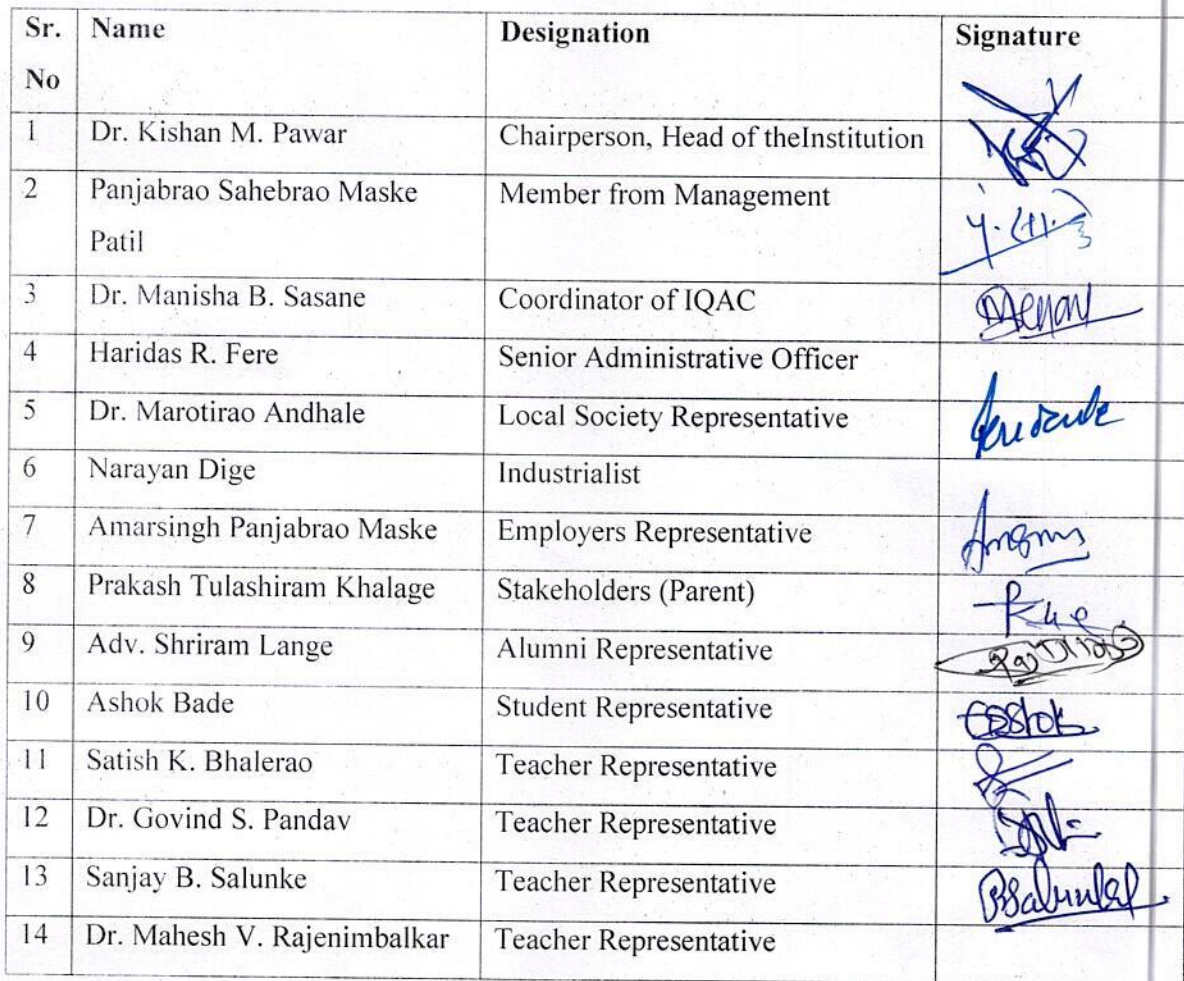 Sr. Name Designation Signature
No
1 Dr. Kishan M. Pawar Chairperson, Head of theInstitution
2 Panjabrao Sahebrao Maske Member from Management
Patil
3 Dr. Manisha B. Sasane Coordinator of IQAC
4 Haridas R. Fere Senior Administrative Officer
5 Dr. Marotirao Andhale Local Society Representative
6 Narayan Dige Industrialist
7 Amarsingh Panjabrao Maske Employers Representative
8 Prakash Tulashiram Khalage Stakeholders (Parent)
9 Adv. Shriram Lange Alumni Representative
10 Ashok Bade Student Representative
11 Satish K. Bhalerao Teacher Representative
12 Dr. Govind S. Pandav Teacher Representative
13 Sanjay B. Salunke Teacher Representative
14 Dr. Mahesh V. Rajenimbalkar Teacher Representative